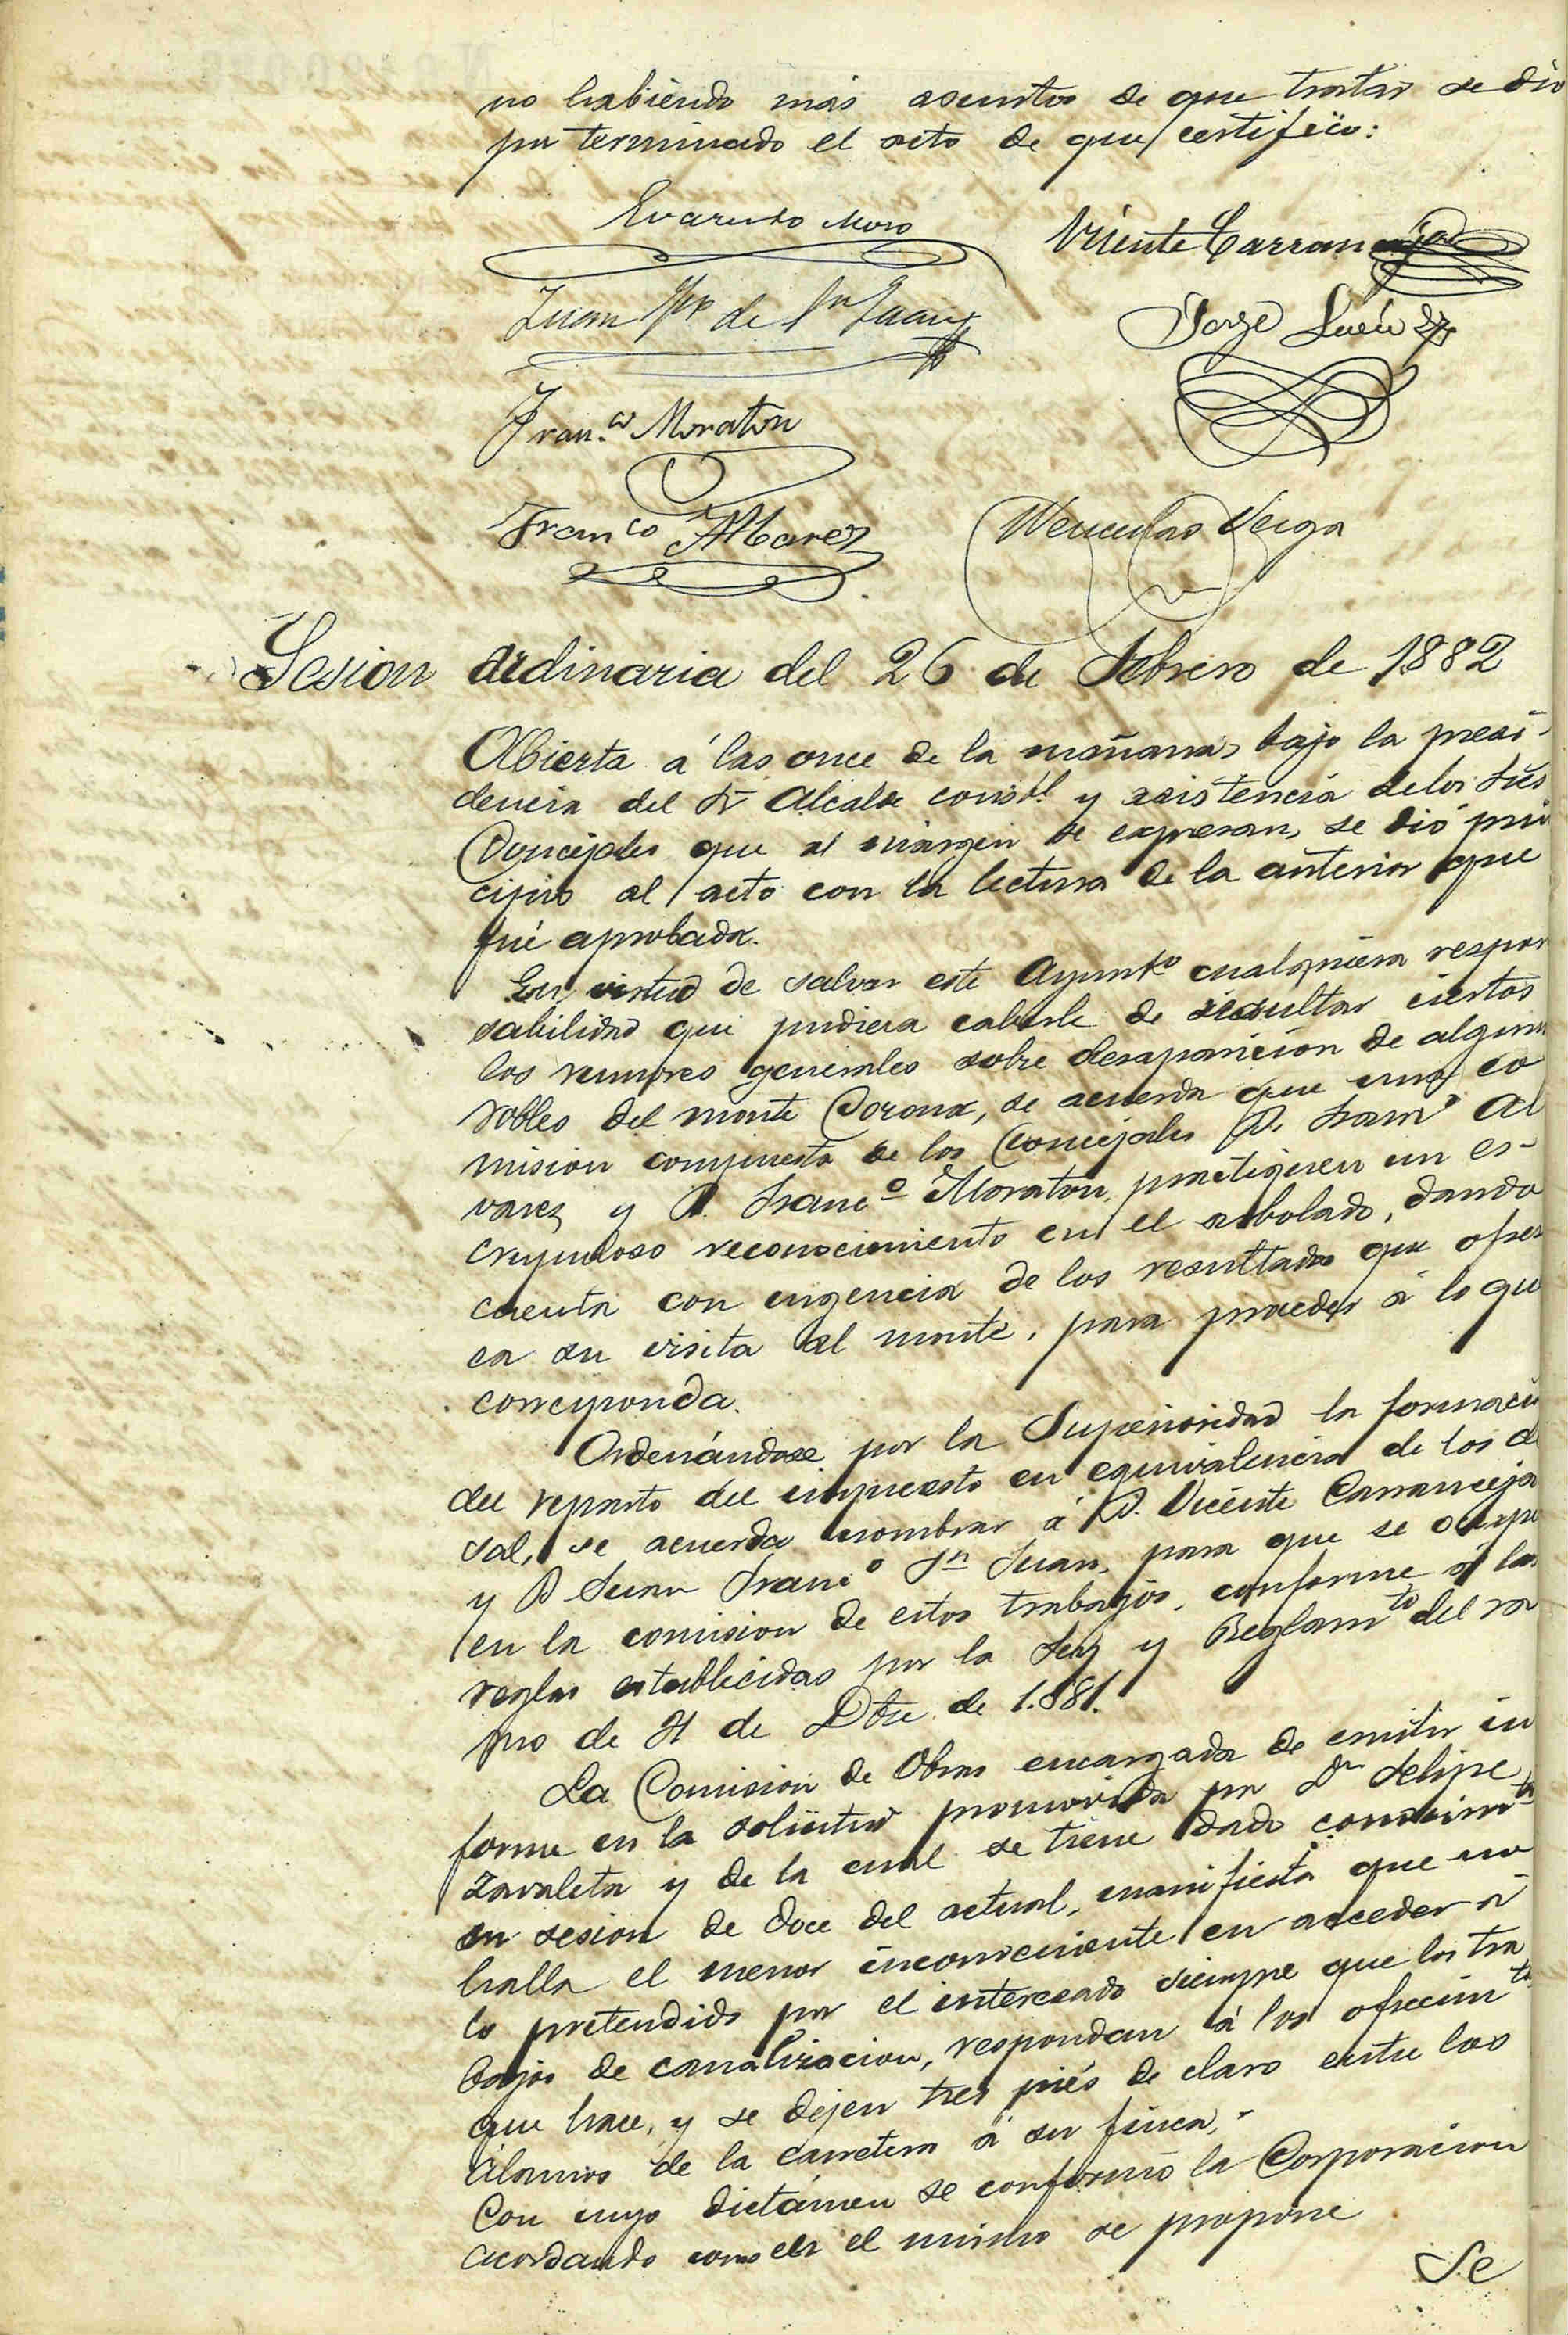 no habiendo más asuntos de que tratar se dio
por terminado el acto de que certifico:
Evaristo Moro
Vicente Carranceja
Juan Fco de Sn Juan
Jorge
Fran.co Moraton
Franco Albarez
Wenceslao Veiga
Sesion ordinaria del 26 de Febrero de 1882
Abierta á las once de la mañana, bajo la presi-
dencia del Sr Alcalde constl y asistencia de los Sres
Concejales que al márgen se expresan, se dió prin
cipio al acto con la lectura de la anterior que
fué aprobada.
En virtud de salvar este Ayunto cualquiera respon
sabilidad que pudiera caberle de resultar ciertos
los rumores generales sobre desaparicion de algunos
robles del monte Corona, se acuerda que una co
mision compuesta de los Concejales D. Franco Al
varez y D. Franco Moraton, practiquen un es-
crupuloso reconocimiento en el arbolado, dando
cuenta con urgencia de los resultados que ofrez
ca su visita al monte, para proceder á lo que
corresponda.
Ordenándose por la Superioridad la formacion
del reparto del impuesto en equivalencia de los de
sal, se acuerda nombrar á D. Vicente Carranceja
y D Juan Franco Sn Juan, para que se ocupe
en la comision de estos trabajos, conforme á las
reglas establecidas por la Ley y Reglamto del ra
mo de 31 de Dbre de 1.881.
La Comision de Obras encargada de emitir in
forme en la solicitud promovida por Dn Felipe
Zavaleta y de la cual se tiene dado conocimto
en sesion de doce del actual, manifiesta que no
halla el menor inconveniente en acceder á
lo pretendido por el interesado siempre que los tra
bajos de canalizacion, respondan á los ofrecimtos
que hace, y se dejen tres piés de claro entre los
álamos de la carretera á su finca.
Con cuyo dictámen se conformó la Corporacion
acordando como en el mismo se propone
Se